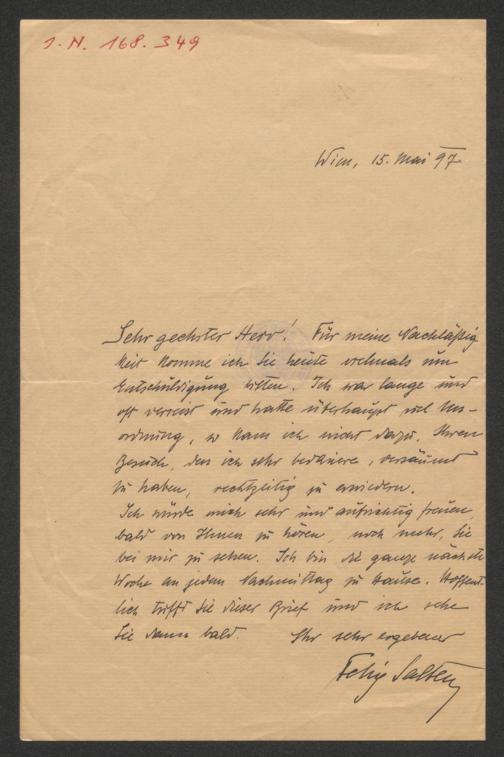 I. N. 168.349
Wien, 15. Mai 97
Sehr geehrter Herr! Für meine Nachläßig
keit komme ich Sie heute vielmals um
Entschuldigung bitten. Ich war lange und
oft verreist und hatte überhaupt viel Un-
ordnung, so kam ich nicht dazu, Ihren
Besuch, den ich sehr bedauere, versäumt
zu haben, rechtzeitig zu erwiedern.
Ich würde mich sehr und aufrichtig freuen
bald von Ihnen zu hören, noch mehr, Sie
bei mir zu sehen. Ich bin die ganze nächste
Woche an jedem Nachmittag zu Hause. Hoffent-
lich trifft Sie dieser Brief und ich sehe
Sie dann bald. Ihr sehr ergebener
Felix Salten